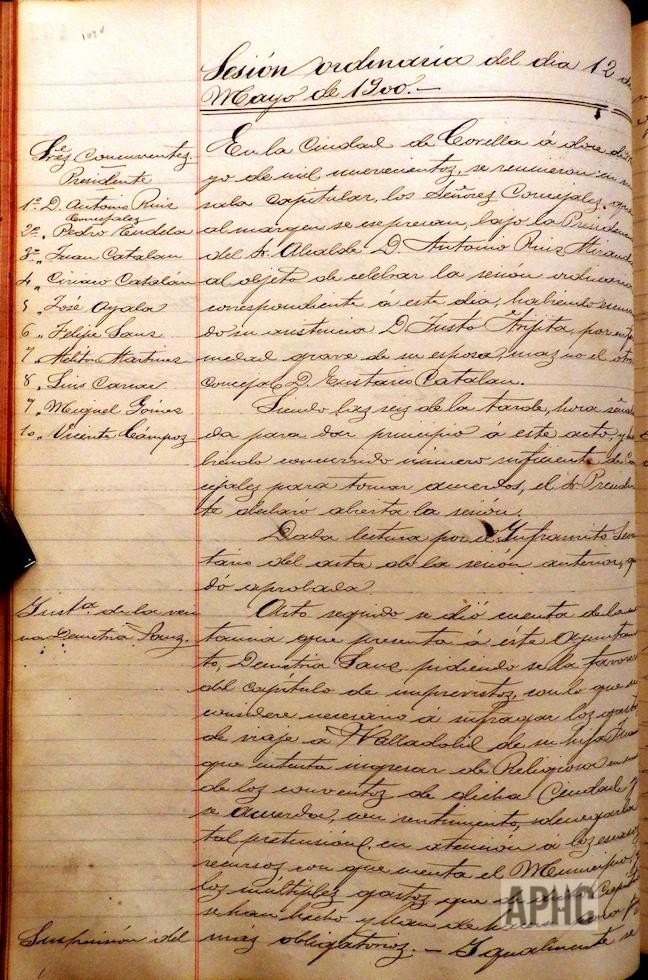 102v
Sesión ordinaria del dia 12 de
Mayo de 1900.—
Sres Concurrentes.
Presidente
1º D. Antonio Ruiz
Concejales
2º „ Pedro Eudela
3º „ Juan Catalan
4 „ Ciriaco Catalán
5 „ José Ayala
6 „ Felipe Sanz
7 „ Melitón Martinez
8 „ Luis
9 „ Miguel Gómez
10 „ Vicente Cámpoz
En la Ciudad de Corella á doce de
yo de mil novecientos, se reunieron en su
sala capitular, los Señores Concejales, que
al margen se expresan, bajo la Presidencia
del Sr. Alcalde D. Antonio Ruiz Miranda
al objeto de celebrar la sesión ordinaria
correspondiente a este dia, habiendo
do su asistencia D. Justo Arijita, por enfer
medad grave de su esposa, mas no el otro
concejal D. Eustasio Catalan.
Siendo las seis de la tarde, hora señala
da para dar principio á este acto, y ha
biendo concurrido número suficiente de Con
cejales para tomar acuerdos, el Sr. Presiden
te declaró abierta la sesión.
Dada lectura por el Infrascrito Secre
tario del acta de la sesión anterior, que
dó aprobada.
Inst.ª de la veci
na Demetria Sanz.
Acto seguido se dió cuenta de la ins
tancia que presenta á éste Ayuntamien
to, Demetria Sanz pidiendo se la favorez
del capítulo de imprevistos, con lo que se
considere necesario á sufragar los gastos
de viaje a Valladolid de su hija
que intenta ingresar de Religiosa en uno
de los conventos de dicha Ciudad y
se acuerda, con sentimiento, denegarla
tal pretensión, en atención á los escasos
recursos con que cuenta el Municipio, y
los multiples gastos que de dicho Capítulo
se han hecho y han de
más obligatorios. — Igualmente se
Suspensión del
APHC